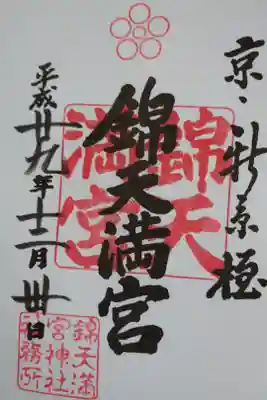 京・新京極
錦天満宮
錦天
満宮
平成廿九年十二月卅日
錦天満
宮神社
務所